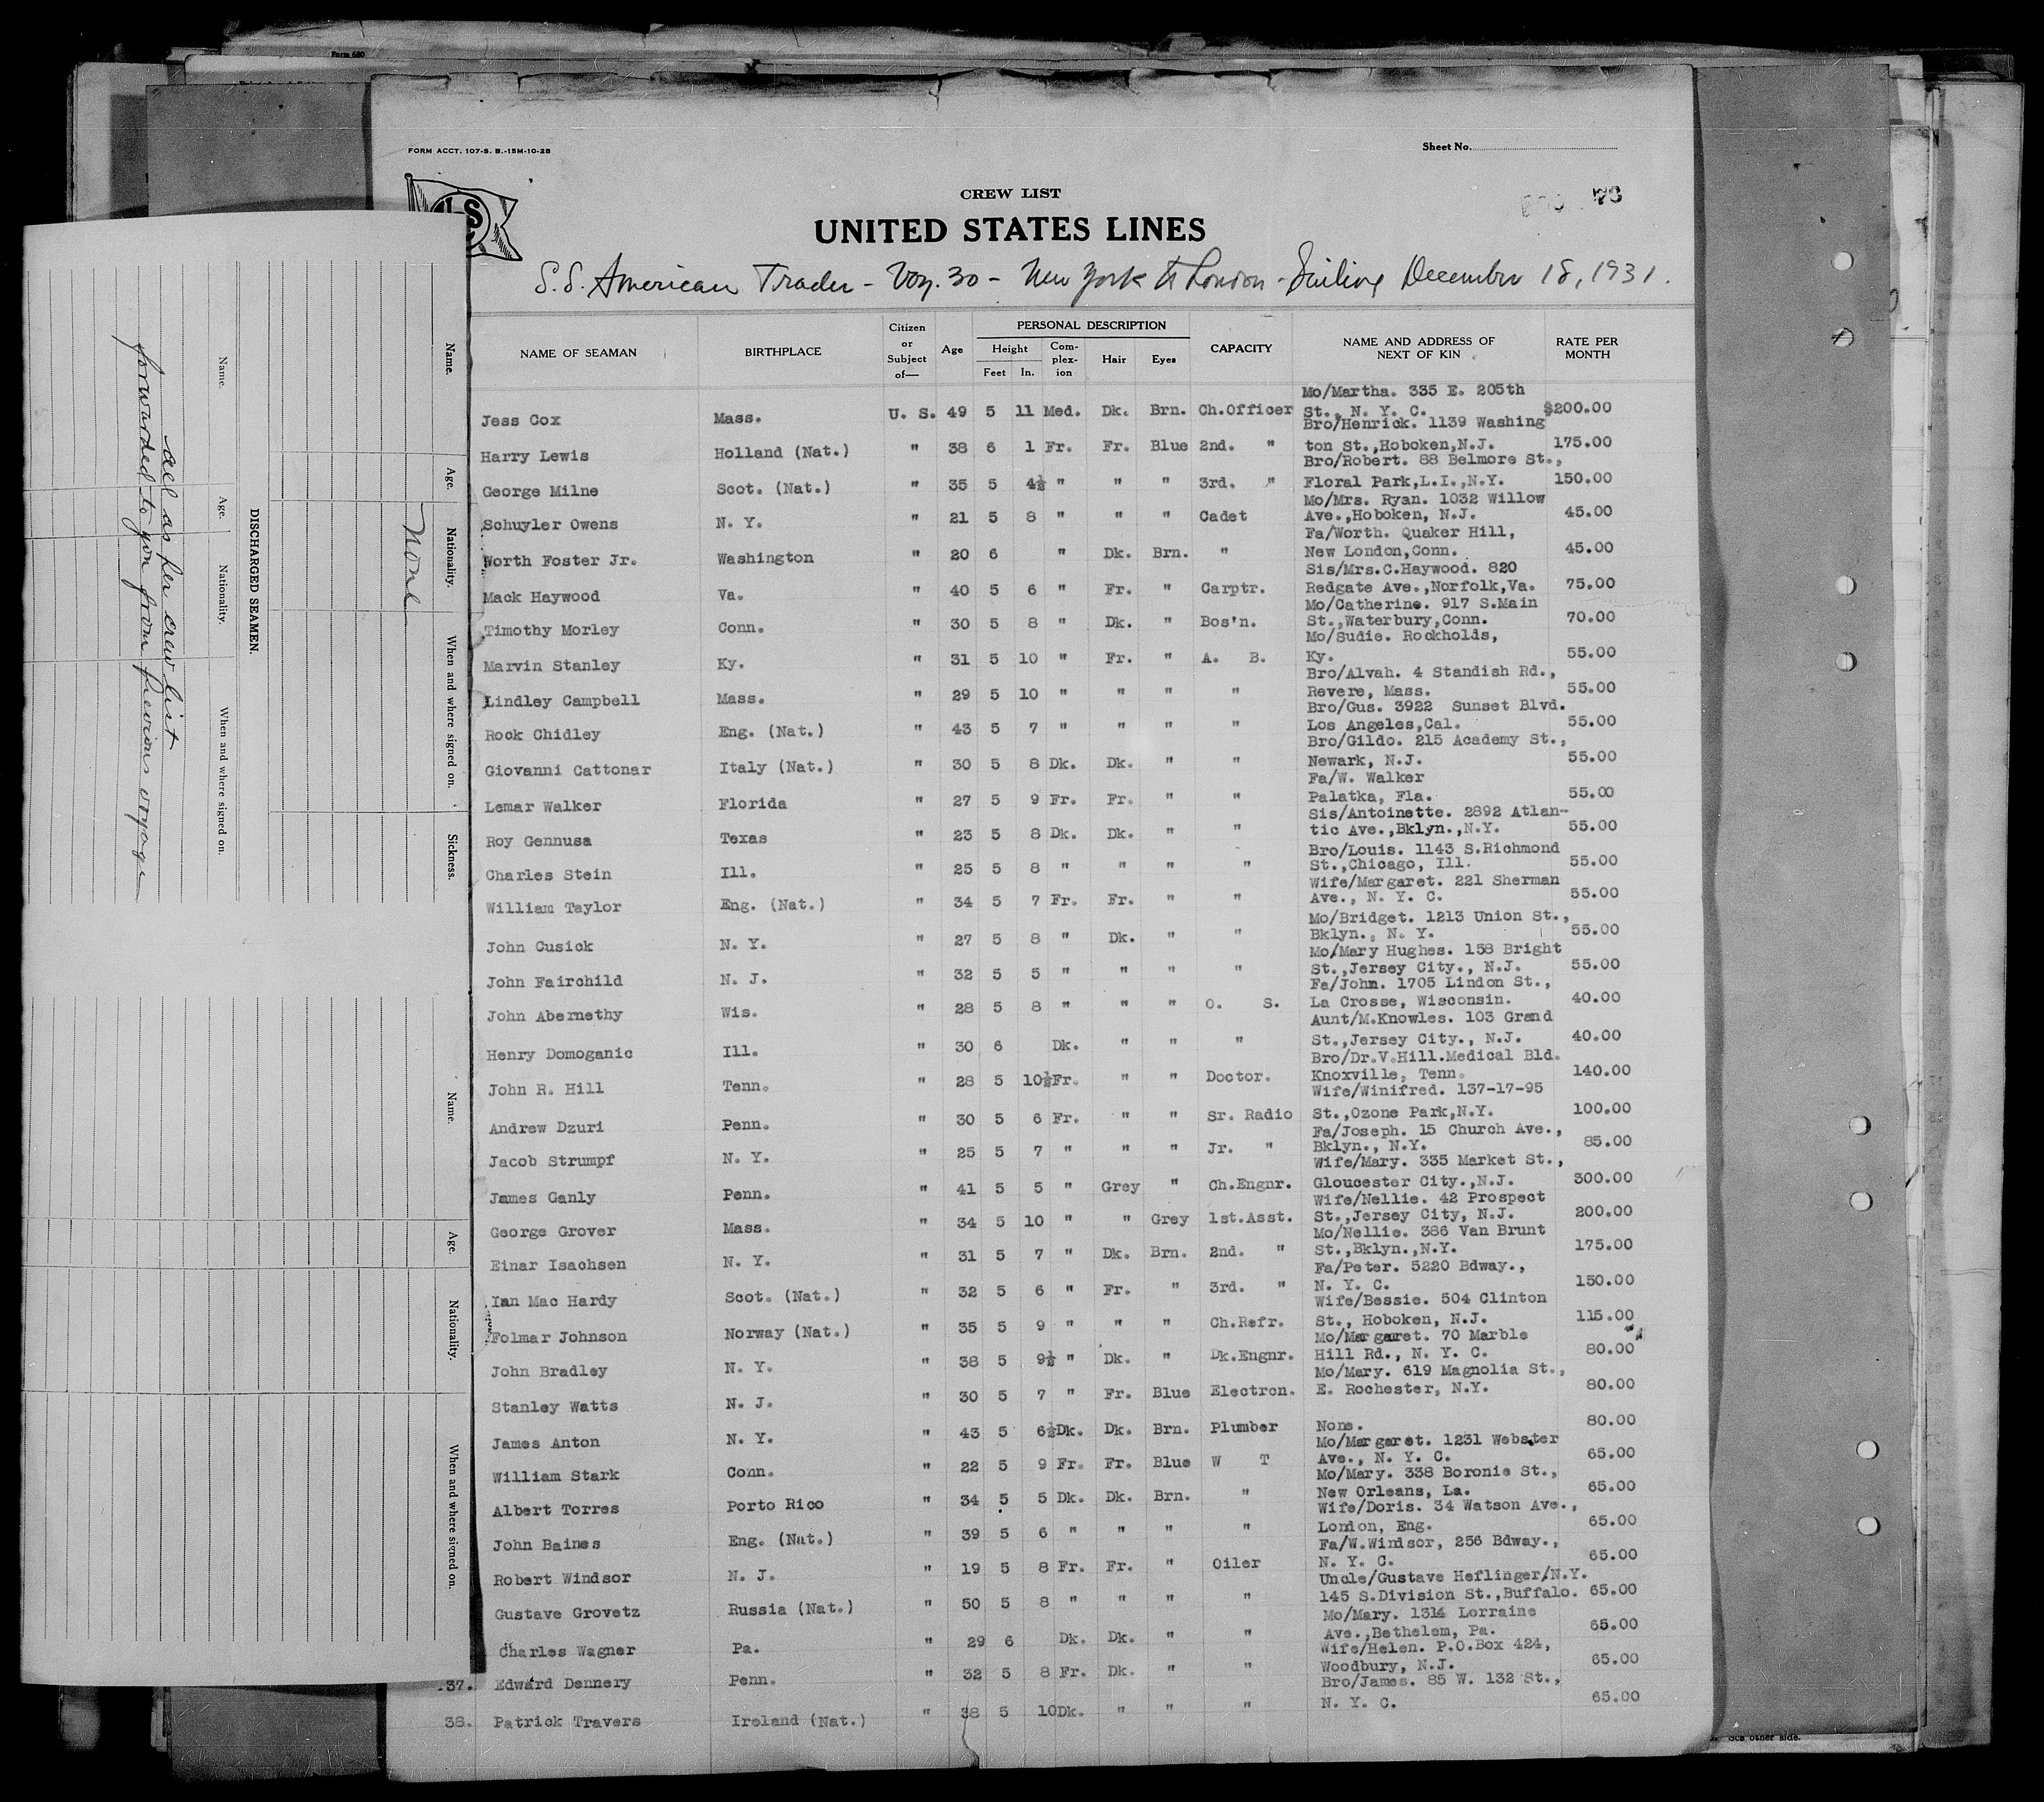 Form 680
FORM ACCT. 107-S. B.-15M-10-28
Sheet No.
CREW LIST
UNITED STATES LINES
S.S. American Trader - Voy. 30 - New York to London - Sailing December 18, 1931.
NAME OF SEAMAN BIRTHPLACE Citizen or Subject of— Age PERSONAL DESCRIPTION CAPACITY NAME AND ADDRESS OF NEXT OF KIN RATE PER MONTH
Height Feet In. Complexion Hair Eyes
Mo/Martha. 335 E. 205th
Jess Cox Mass. U. S. 49 5 11 Med. Dk. Brn. Ch.Officer St., N. Y. C. $200.00
Bro/Henrick. 1139 Washing
Harry Lewis Holland (Nat.) " 38 6 1 Fr. Fr. Blue 2nd. " ton St.,Hoboken,N.J. 175.00
Bro/Robert. 88 Belmore St.,
George Milne Scot. (Nat.) " 35 5 4½ " " " 3rd. " Floral Park,L.I.,N.Y. 150.00
Mo/Mrs. Ryan. 1032 Willow
Schuyler Owens N. Y. " 21 5 8 " " " Cadet Ave.,Hoboken, N.J. 45.00
Fa/Worth. Quaker Hill,
Worth Foster Jr. Washington " 20 6 " Dk. Brn. " New London,Conn. 45.00
Sis/Mrs.C.Haywood. 820
Mack Haywood Va. " 40 5 6 " Fr. " Carptr. Redgate Ave.,Norfolk,Va. 75.00
Mo/Catherine. 917 S.Main
Timothy Morley Conn. " 30 5 8 " Dk. " Bos'n. St.,Waterbury,Conn. 70.00
Mo/Sudie. Rockholds,
Marvin Stanley Ky. " 31 5 10 " Fr. " A. B. Ky. 55.00
Bro/Alvah. 4 Standish Rd.,
Lindley Campbell Mass. " 29 5 10 " " " " Revere, Mass. 55.00
Bro/Gus. 3922 Sunset Blvd.
Rock Chidley Eng. (Nat.) " 43 5 7 " " " " Los Angeles,Cal. 55.00
Bro/Gildo. 215 Academy St.,
Giovanni Cattonar Italy (Nat.) " 30 5 8 Dk. Dk. " " Newark, N.J. 55.00
Fa/W. Walker
Lemar Walker Florida " 27 5 9 Fr. Fr. " " Palatka, Fla. 55.00
Sis/Antoinette. 2892 Atlan-
Roy Gennusa Texas " 23 5 8 Dk. Dk. " " tic Ave.,Bklyn.,N.Y. 55.00
Bro/Louis. 1143 S.Richmond
Charles Stein Ill. " 25 5 8 " " " " St.,Chicago, Ill. 55.00
Wife/Margaret. 221 Sherman
William Taylor Eng. (Nat.) " 34 5 7 Fr. Fr. " " Ave., N. Y. C. 55.00
Mo/Bridget. 1213 Union St.,
John Cusick N. Y. " 27 5 8 " Dk. " " Bklyn., N. Y. 55.00
Mo/Mary Hughes. 158 Bright
John Fairchild N. J. " 32 5 5 " " " " St.,Jersey City., N.J. 55.00
Fa/John. 1705 Lindon St.,
John Abernethy Wis. " 28 5 8 " " " O. S. La Crosse, Wisconsin. 40.00
Aunt/M.Knowles. 103 Grand
Henry Domoganic Ill. " 30 6 Dk. " " " St.,Jersey City., N.J. 40.00
Bro/Dr.V.Hill.Medical Bld.
John R. Hill Tenn. " 28 5 10½ Fr. " " Doctor. Knoxville, Tenn. 140.00
Wife/Winifred. 137-17-95
Andrew Dzuri Penn. " 30 5 6 Fr. " " Sr. Radio St.,Ozone Park,N.Y. 100.00
Fa/Joseph. 15 Church Ave.,
Jacob Strumpf N. Y. " 25 5 7 " " " Jr. " Bklyn., N.Y. 85.00
Wife/Mary. 335 Market St.,
James Ganly Penn. " 41 5 5 " Grey " Ch.Engnr. Gloucester City.,N.J. 300.00
Wife/Nellie. 42 Prospect
George Grover Mass. " 34 5 10 " " Grey 1st.Asst. St.,Jersey City, N.J. 200.00
Mo/Nellie. 386 Van Brunt
Einar Isachsen N. Y. " 31 5 7 " Dk. Brn. 2nd. " St.,Bklyn.,N.Y. 175.00
Fa/Peter. 5220 Bdway.,
Ian Mac Hardy Scot. (Nat.) " 32 5 6 " Fr. " 3rd. " N. Y. C. 150.00
Wife/Bessie. 504 Clinton
Folmar Johnson Norway (Nat.) " 35 5 9 " " " Ch.Refr. St., Hoboken, N.J. 115.00
Mo/Margaret. 70 Marble
John Bradley N. Y. " 38 5 9½ " Dk. " Dk.Engnr. Hill Rd., N. Y. C. 80.00
Mo/Mary. 619 Magnolia St.,
Stanley Watts N. J. " 30 5 7 " Fr. Blue Electrcn. E. Rochester, N.Y. 80.00
James Anton N. Y. " 43 5 6½ Dk. Dk. Brn. Plumber None. 80.00
Mo/Margaret. 1231 Webster
William Stark Conn. " 22 5 9 Fr. Fr. Blue W T Ave., N. Y. C. 65.00
Mo/Mary. 338 Boronie St.,
Albert Torres Porto Rico " 34 5 5 Dk. Dk. Brn. " New Orleans, La. 65.00
Wife/Doris. 34 Watson Ave.,
John Baines Eng. (Nat.) " 39 5 6 " " " " London, Eng. 65.00
Fa/W.Windsor, 256 Bdway.,
Robert Windsor N. J. " 19 5 8 Fr. Fr. " Oiler N. Y. C. 65.00
Uncle/Gustave Heflinger/N.Y.
Gustave Grovetz Russia (Nat.) " 50 5 8 " " " " 145 S.Division St.,Buffalo. 65.00
Mo/Mary. 1314 Lorraine
Charles Wagner Pa. " 29 6 Dk. Dk. " " Ave.,Bethelem, Pa. 65.00
Wife/Helen. P.O.Box 424,
37. Edward Dennery Penn. " 32 5 8 Fr. Dk. " " Woodbury, N.J. 65.00
Bro/James. 85 W. 132 St.,
38. Patrick Travers Ireland (Nat.) " 38 5 10 Dk. " " " N. Y. C. 65.00
See other side.
Name. Age. Nationality. When and where signed on. Sickness.
None
DISCHARGED SEAMEN.
Name. Age. Nationality. When and where signed on.
all as per crew list
forwarded to you from previous voyage
Name. Age. Nationality. When and where signed on.